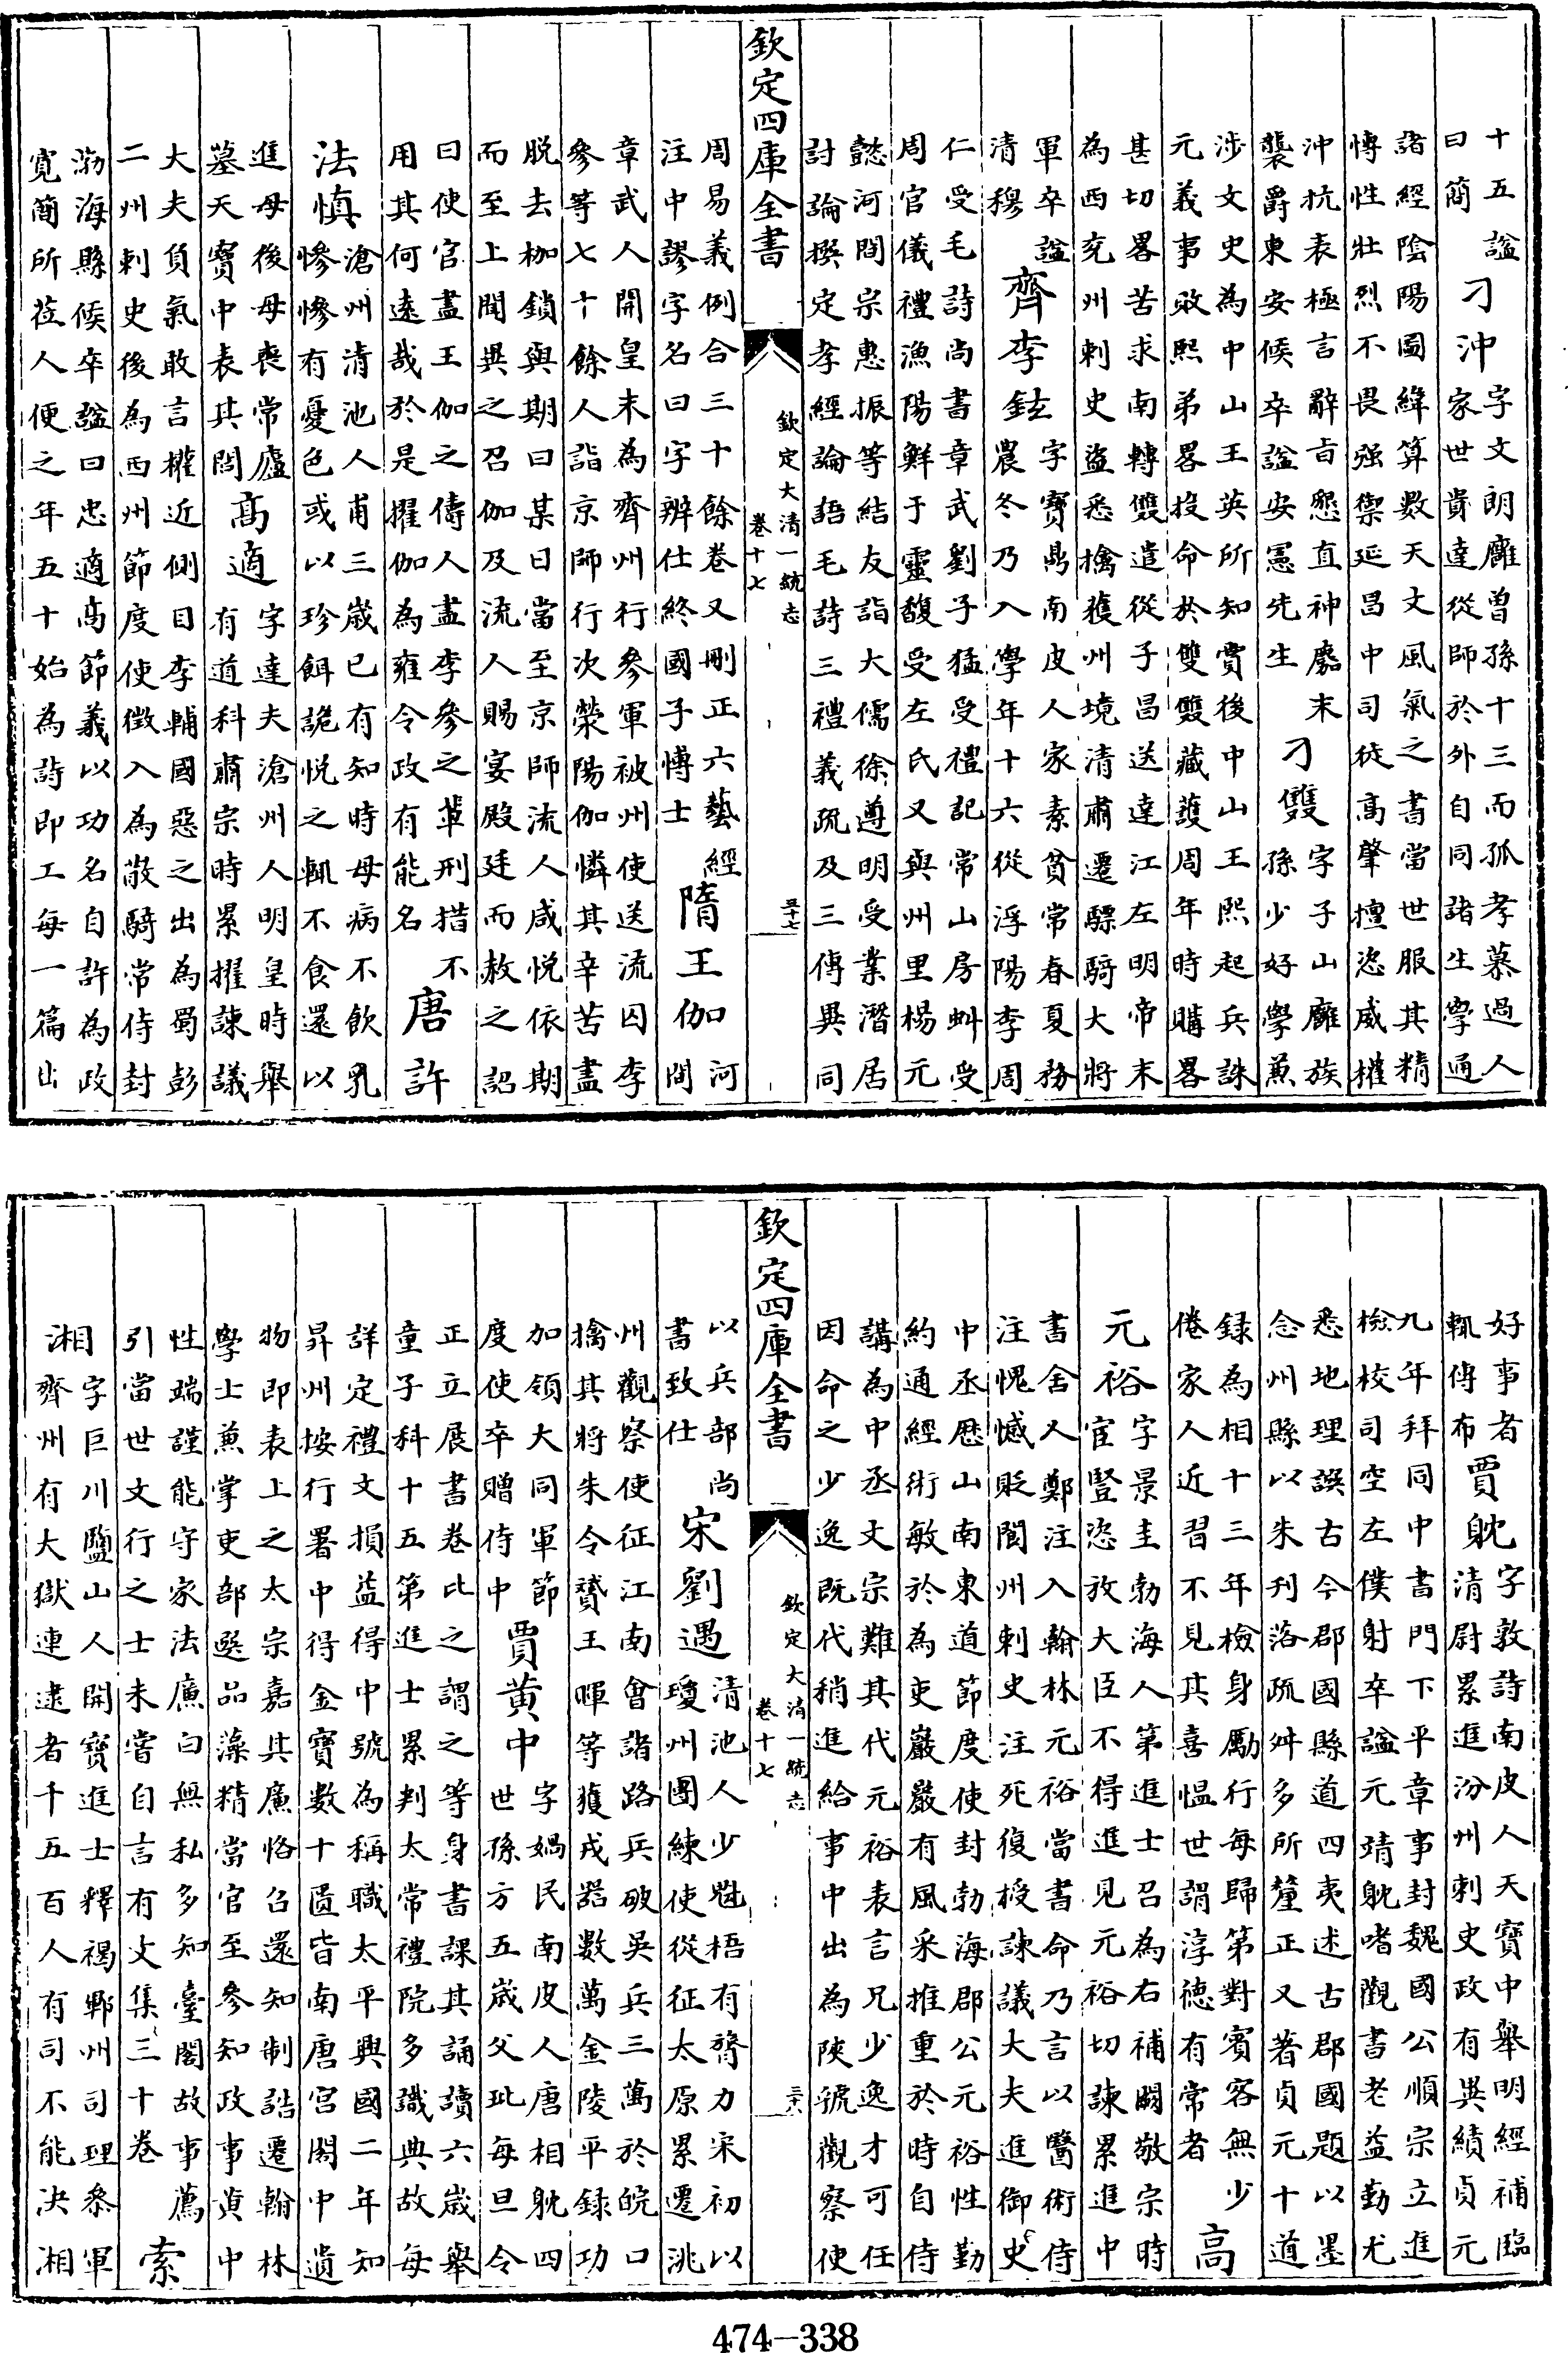 十五謚
曰簡
刁沖
字文朗雝曾孫十三而孤孝慕過人
家世貴達從師於外自同諸生學通
諸經陰陽圖緯算數天文風氣之書當世服其精
博性壯烈不畏强禦延昌中司徒高肇擅恣威權
沖抗表極言辭㫖懇直神龜末
襲爵東安侯卒謚安憲先生
刁雙
字子山雝族
孫少好學兼
涉文史為中山王英所知賞後中山王熙起兵誅
元義事敗熙弟畧投命於雙雙藏護周年時購畧
甚切畧苦求南轉雙遣從子昌送達江左明帝末
為西兖州刺史盜悉擒獲州境清肅遷驃騎大將
軍卒謚
清穆
齊李鉉
字寶鼎南皮人家素貧常春夏務
農冬乃入學年十六從浮陽李周
仁受毛詩尚書章武劉子猛受禮記常山房虯受
周官儀禮漁陽鮮于靈馥受左氏又與州里楊元
懿河間宗惠振等結友詣大儒徐遵明受業潛居
討論撰定孝經論語毛詩三禮義疏及三傳異同
欽定四庫全書
欽定大清一統志
卷十七
五十七
周易義例合三十餘卷又刪正六藝經
注中謬字名曰字辨仕終國子博士
隋王伽
河
間
章武人開皇末為齊州行參軍被州使送流囚李
參等七十餘人詣京師行次滎陽伽憐其辛苦盡
脱去枷鎖與期曰某日當至京師流人咸悅依期
而至上聞異之召伽及流人賜宴殿廷而赦之詔
曰使官盡王伽之儔人盡李參之輩刑措不
用其何遠哉於是擢伽為雍令政有能名
唐許
法慎
滄州清池人甫三歲已有知時母病不飲乳
慘慘有憂色或以珍餌詭悦之輒不食還以
進母後母喪常廬
墓天寶中表其閭
高適
字達夫滄州人明皇時舉
有道科肅宗時累擢諫議
大夫負氣敢言權近側目李輔國惡之出為蜀彭
二州刺史後為西州節度使徵入為散騎常侍封
渤海縣侯卒謚曰忠適高節義以功名自許為政
寛簡所莅人便之年五十始為詩即工每一篇出
好事者
輒傳布
賈躭
字敦詩南皮人天寶中舉明經補臨
清尉累進汾州刺史政有異績貞元
九年拜同中書門下平章事封魏國公順宗立進
檢校司空左僕射卒謚元靖躭嗜觀書老益勤尤
悉地理誤古今郡國縣道四夷述古郡國題以墨
念州縣以朱刋落疏舛多所釐正又著貞元十道
録為相十三年檢身勵行每歸第對賓客無少
倦家人近習不見其喜愠世謂淳德有常者
高
元裕
字景圭勃海人第進士召為右補闕敬宗時
宦豎恣放大臣不得進見元裕切諫累進中
書舍人鄭注入翰林元裕當書命乃言以醫術侍
注愧憾貶閬州刺史注死復授諫議大夫進御史
中丞歴山南東道節度使封勃海郡公元裕性勤
約通經術敏於為吏巖巖有風采推重於時自侍
講為中丞文宗難其代元裕表言兄少逸才可任
因命之少逸既代稍進給事中出為陜虢觀察使
欽定四庫全書
欽定大清一統志
卷十七
以兵部尚
書致仕
宋劉遇
清池人少魁梧有膂力宋初以
瓊州團練使從征太原累遷洮
州觀察使征江南會諸路兵破吳兵三萬於皖口
擒其將朱令贇王暉等獲戎器數萬金陵平録功
加領大同軍節
度使卒贈侍中
賈黄中
字媧民南皮人唐相躭四
世孫方五歲父玭每旦令
正立展書卷比之謂之等身書課其誦讀六歲舉
童子科十五第進士累判太常禮院多識典故每
詳定禮文損益得中號為稱職太平興國二年知
昇州按行署中得金寶數十匱皆南唐宫閣中遺
物即表上之太宗嘉其廉恪召還知制誥遷翰林
學士兼掌吏部選品藻精當官至參知政事黄中
性端謹能守家法廉白無私多知臺閣故事薦
引當世文行之士未嘗自言有文集三十卷
索
湘
字巨川鹽山人開寶進士釋褐鄆州司理參軍
齊州有大獄連逮者千五百人有司不能决湘
474-338